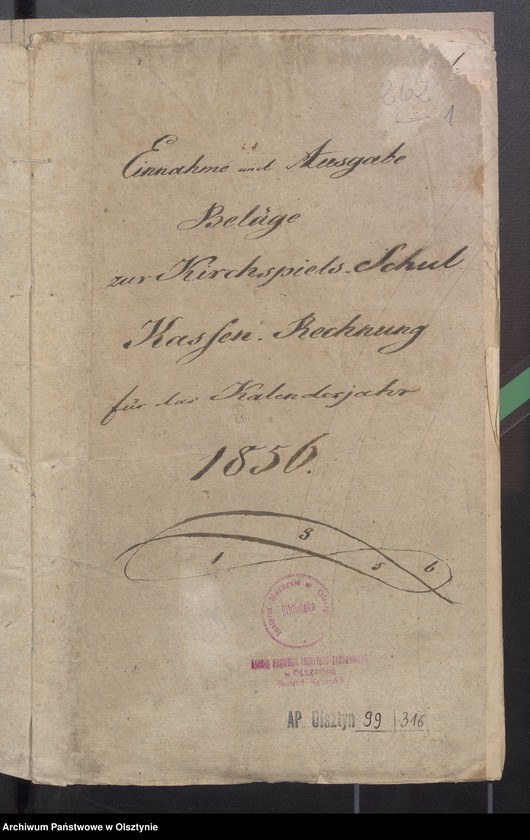 262
1
Einnahme und Ausgabe
Beläge
zur Kirchspiels-Schul
Kassen-Rechnung
für das Kalenderjahr
1856.
3
1 5 6
Instytut Mazurski w Olsztynie
Biblioteka
w OLSZTYNIE
AP. Olsztyn 99/316
Archiwum Państwowe w Olsztynie